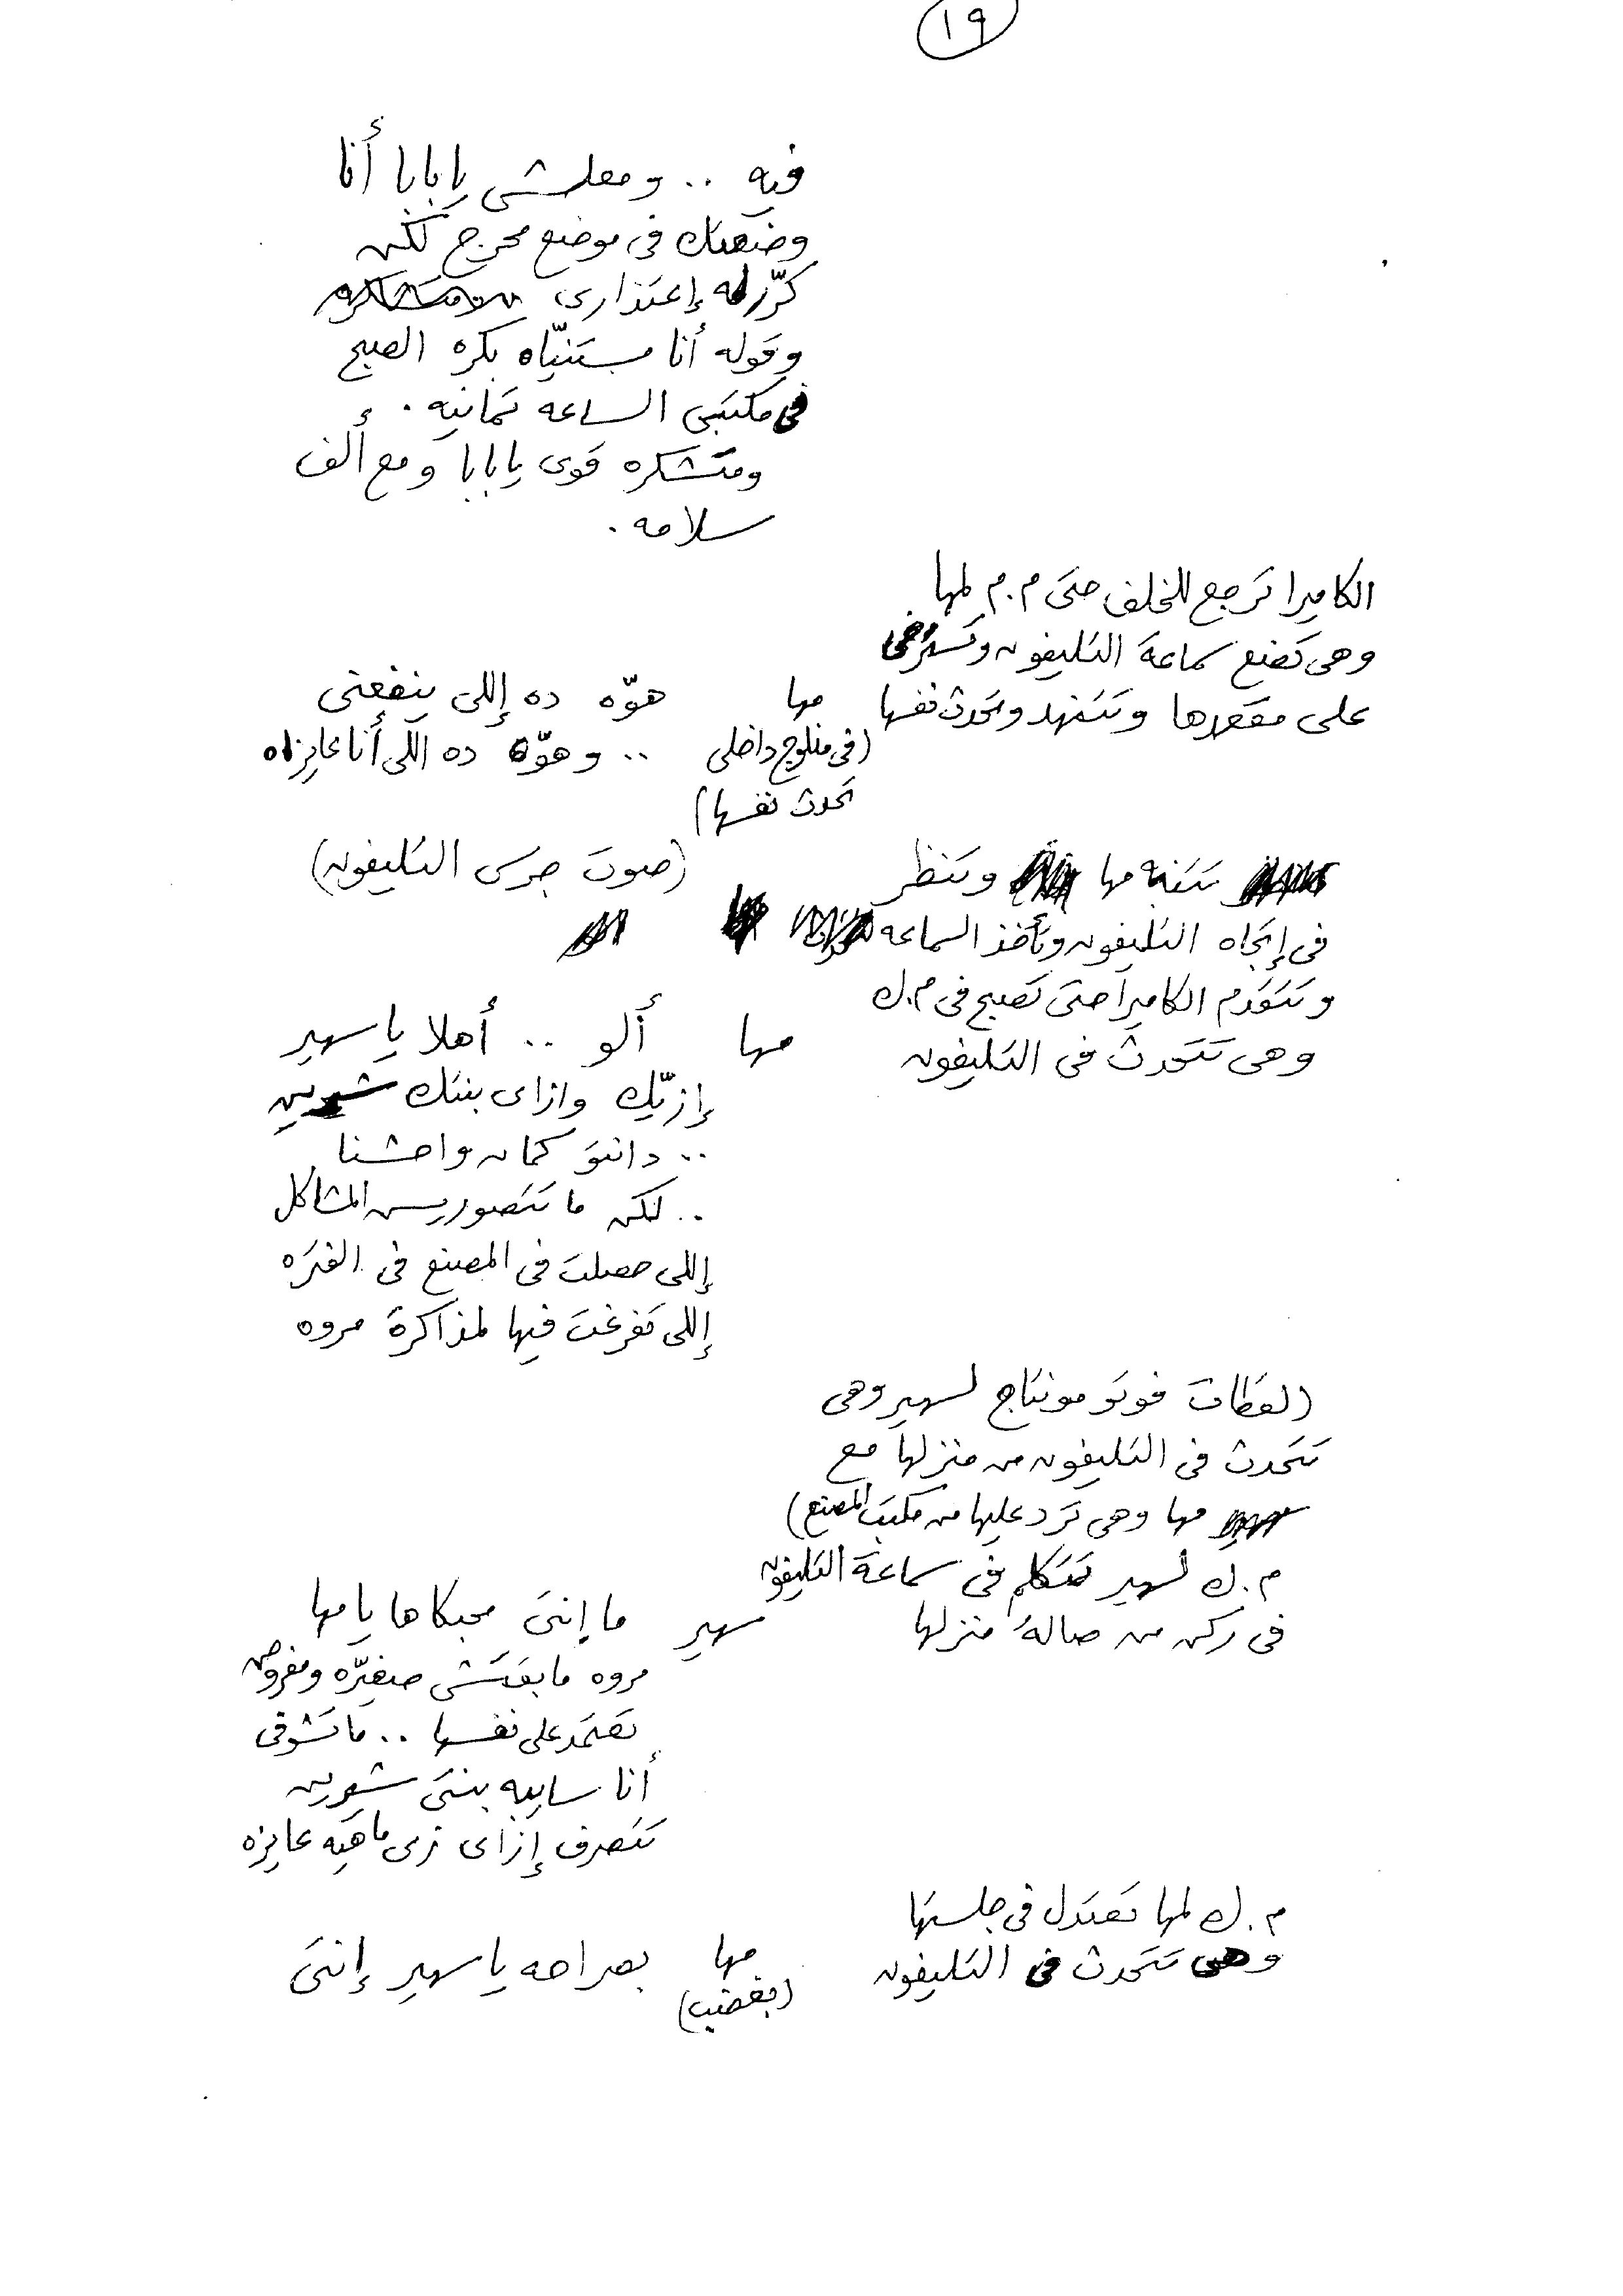 ١٩
فيه .. ومعلشى يا بابا أنا
وضعتك فى موضع محرج لكن
كرّرله إعتذارى
وقوله أنا مستنيّاه بكره الصبح
فى مكتبى الساعه تمانيه .
ومتشكره قوى يا بابا ومع ألف
سلامه .
الكاميرا ترجع للخلف حتى م.م لمها
وهى تضع سماعة التليفون وتسترخى
على مقعدها وتتنهد وتحدث نفسها
مها
(فى منلوج داخلى
تحدث نفسها)
هوّه ده إللى ينفعنى
.. وهوّه ده اللى أنا عايزاه
(صوت جرس التليفون)
تتنبه مها وتنظر
فى إتجاه التليفون وتأخذ السماعه
وتتقدم الكاميرا حتى تصبح فى م.ك
وهى تتحدث فى التليفون
مها
ألو .. أهلا يا سهير
إزيّك وازاى بنتك شيرين
.. دانتو كمان واحشنا
.. لكن ما تتصوريس المشاكل
إللى حصلت فى المصنع فى الفتره
إللى تفرغت فيها لمذاكرة مروه
(لقطات فوتو مونتاج لسهير وهى
تتحدث فى التليفون من منزلها مع
مها وهى ترد عليها من مكتب المصنع)
م.ك لسهير تتكلم فى سماعة التليفون
فى ركن من صالة منزلها
سهير
ما إنتى محبكاها يا مها
مروه ما بقتشى صغيّره ومفروض
تعتمد على نفسها .. ما تشوفى
أنا سايبه بنتى شيرين
تتصرف إزاى زى ما هيّه عايزه
م.ك لمها تعتدل فى جلستها
وهى تتحدث فى التليفون
مها
(بغضب)
بصراحه يا سهير إنتى